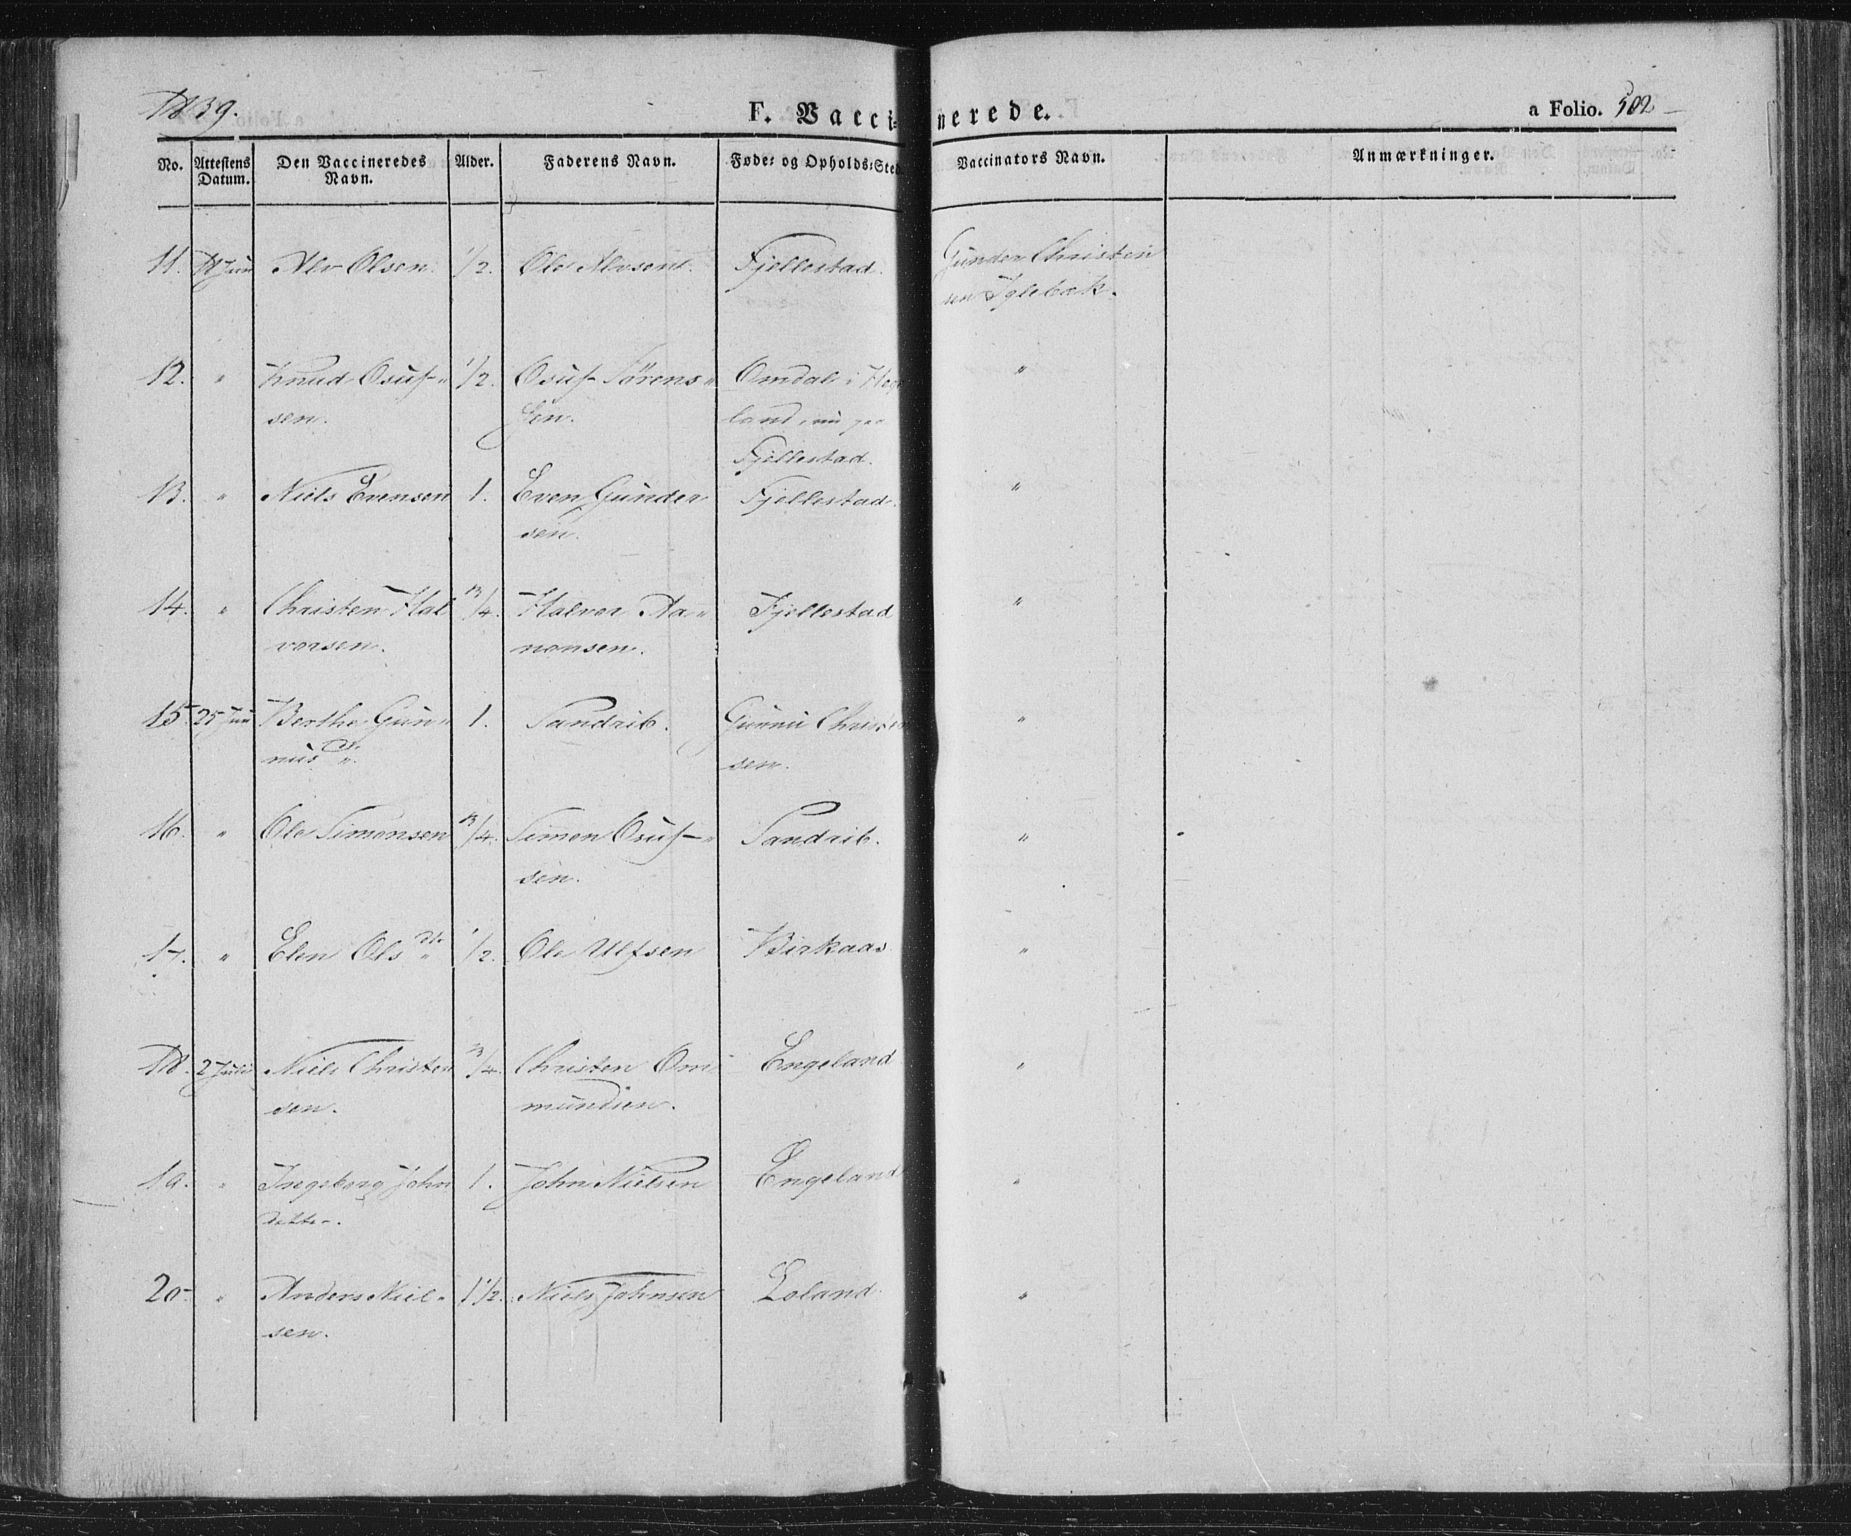 1839.
F. Vaccinerede.
a Folio. 502
No.
Attestens Datum.
Den Vaccineredes Navn.
Alder.
Faderens Navn.
Føde= og Opholds=Sted
Vaccinators Navn.
Anmærkninger.
11. 18 Juni Alv Olsen. 1/2. Ole Alvsen. Fjellestad. Gunder Christen
sen Iglebæk.
12. " Knud Osuf- 1/2. Osuf Sørens Omdal i Hege "
sen. sen. land, nu paa
Fjellestad.
13. " Niels Evensen 1. Even Gunder Fjellestad. "
sen.
14. " Christen Hal 3/4. Halver Aa= Fjellestad "
vorsen. nonsen.
15. 25 Juni Berthe Gun= 1. Sandrib. Gunnu Christen "
nus D.
sen.
16. " Ole Simonsen 3/4. Simon Osuf- Sandrib. "
sen.
17. " Elen Ols Dtr 1/2. Ole Ulfsen Birkaas "
18. 2 Juli Niels Christen 3/4. Christen Om Engeland "
sen. mundsen.
19. " Ingeborg John 1. John Nielsen Engeland "
datter.
20. " Anders Niel= 1 1/2. Niels Johnsen Loland "
sen.